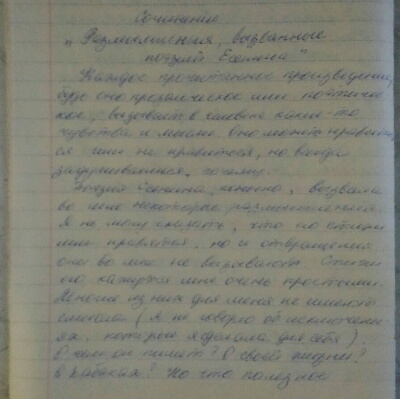 Сочинение
"Размышления, вызванные
поэзией Есенина"
Каждое прочитанное произведение,
будь оно прозаическое или поэтичес-
кое, вызывает в человеке какие-то
чувства и мысли. Оно может нравить-
ся или не нравиться, но всегда
задумываешься, почему.
Поэзия Есенина, конечно, вызвала
во мне некоторые размышления.
Я не могу сказать, что его стихи
мне нравятся, но и отвращения
они во мне не вызывают. Стихи
его кажутся мне очень простыми.
Многие из них для меня не имеют
смысла (я не говорю об исключени-
ях, которые я сделала для себя).
О чём он пишет? О своей жизни?
О кабаках? Но что полезное